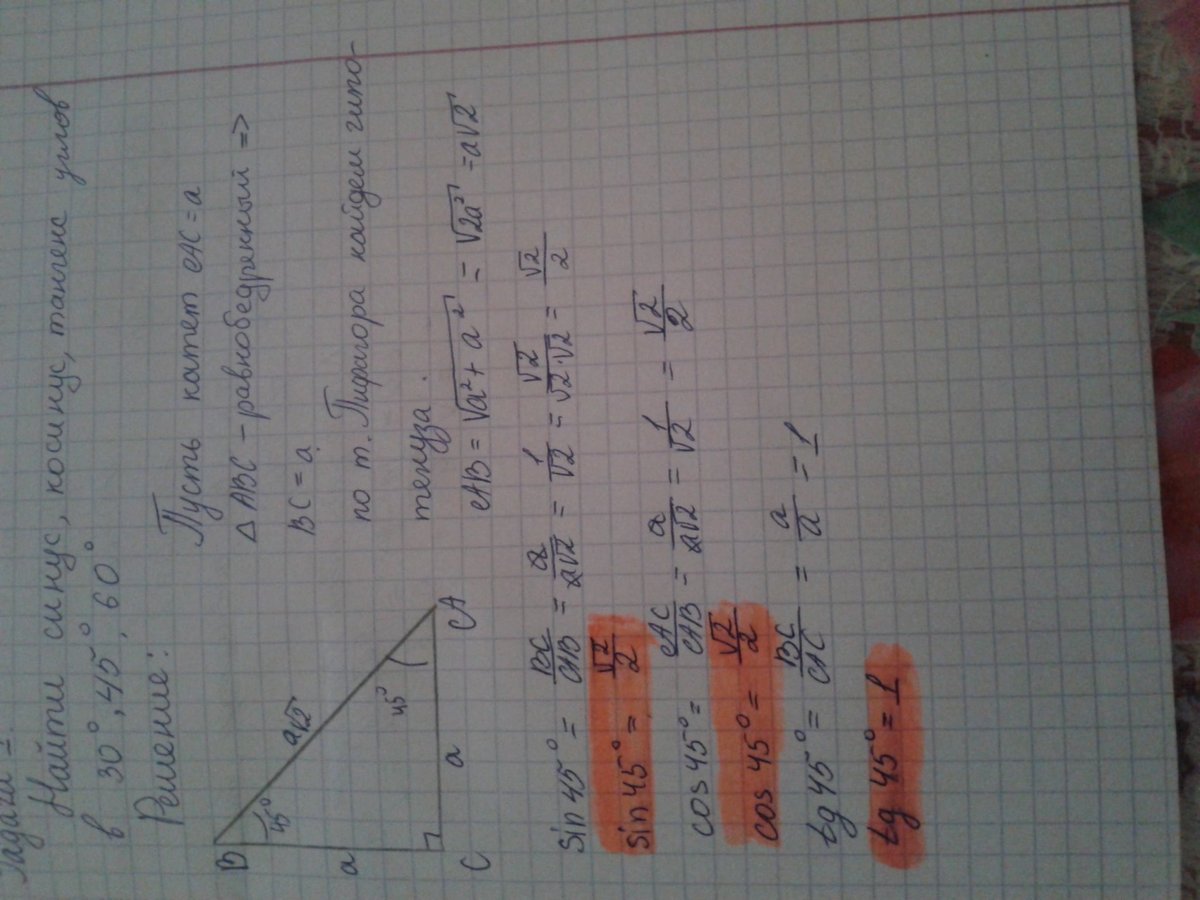 Задача =
Найти синус, косинус, тангенс углов
в 30°, 45°, 60°
Решение:
B
45°
a√2
a
45°
C
a
A
Пусть катет AC = a
Δ ABC – равнобедренный =>
BC = a
по т. Пифагора найдем гипо-
тенуза.
AB = √a²+a² = √2a² = a√2
Sin 45° = BC/AB = a/a√2 = 1/√2 = √2/√2·√2 = √2/2
Sin 45° = √2/2
cos 45° = AC/AB = a/a√2 = 1/√2 = √2/2
cos 45° = √2/2
tg 45° = BC/AC = a/a = 1
tg 45° = 1